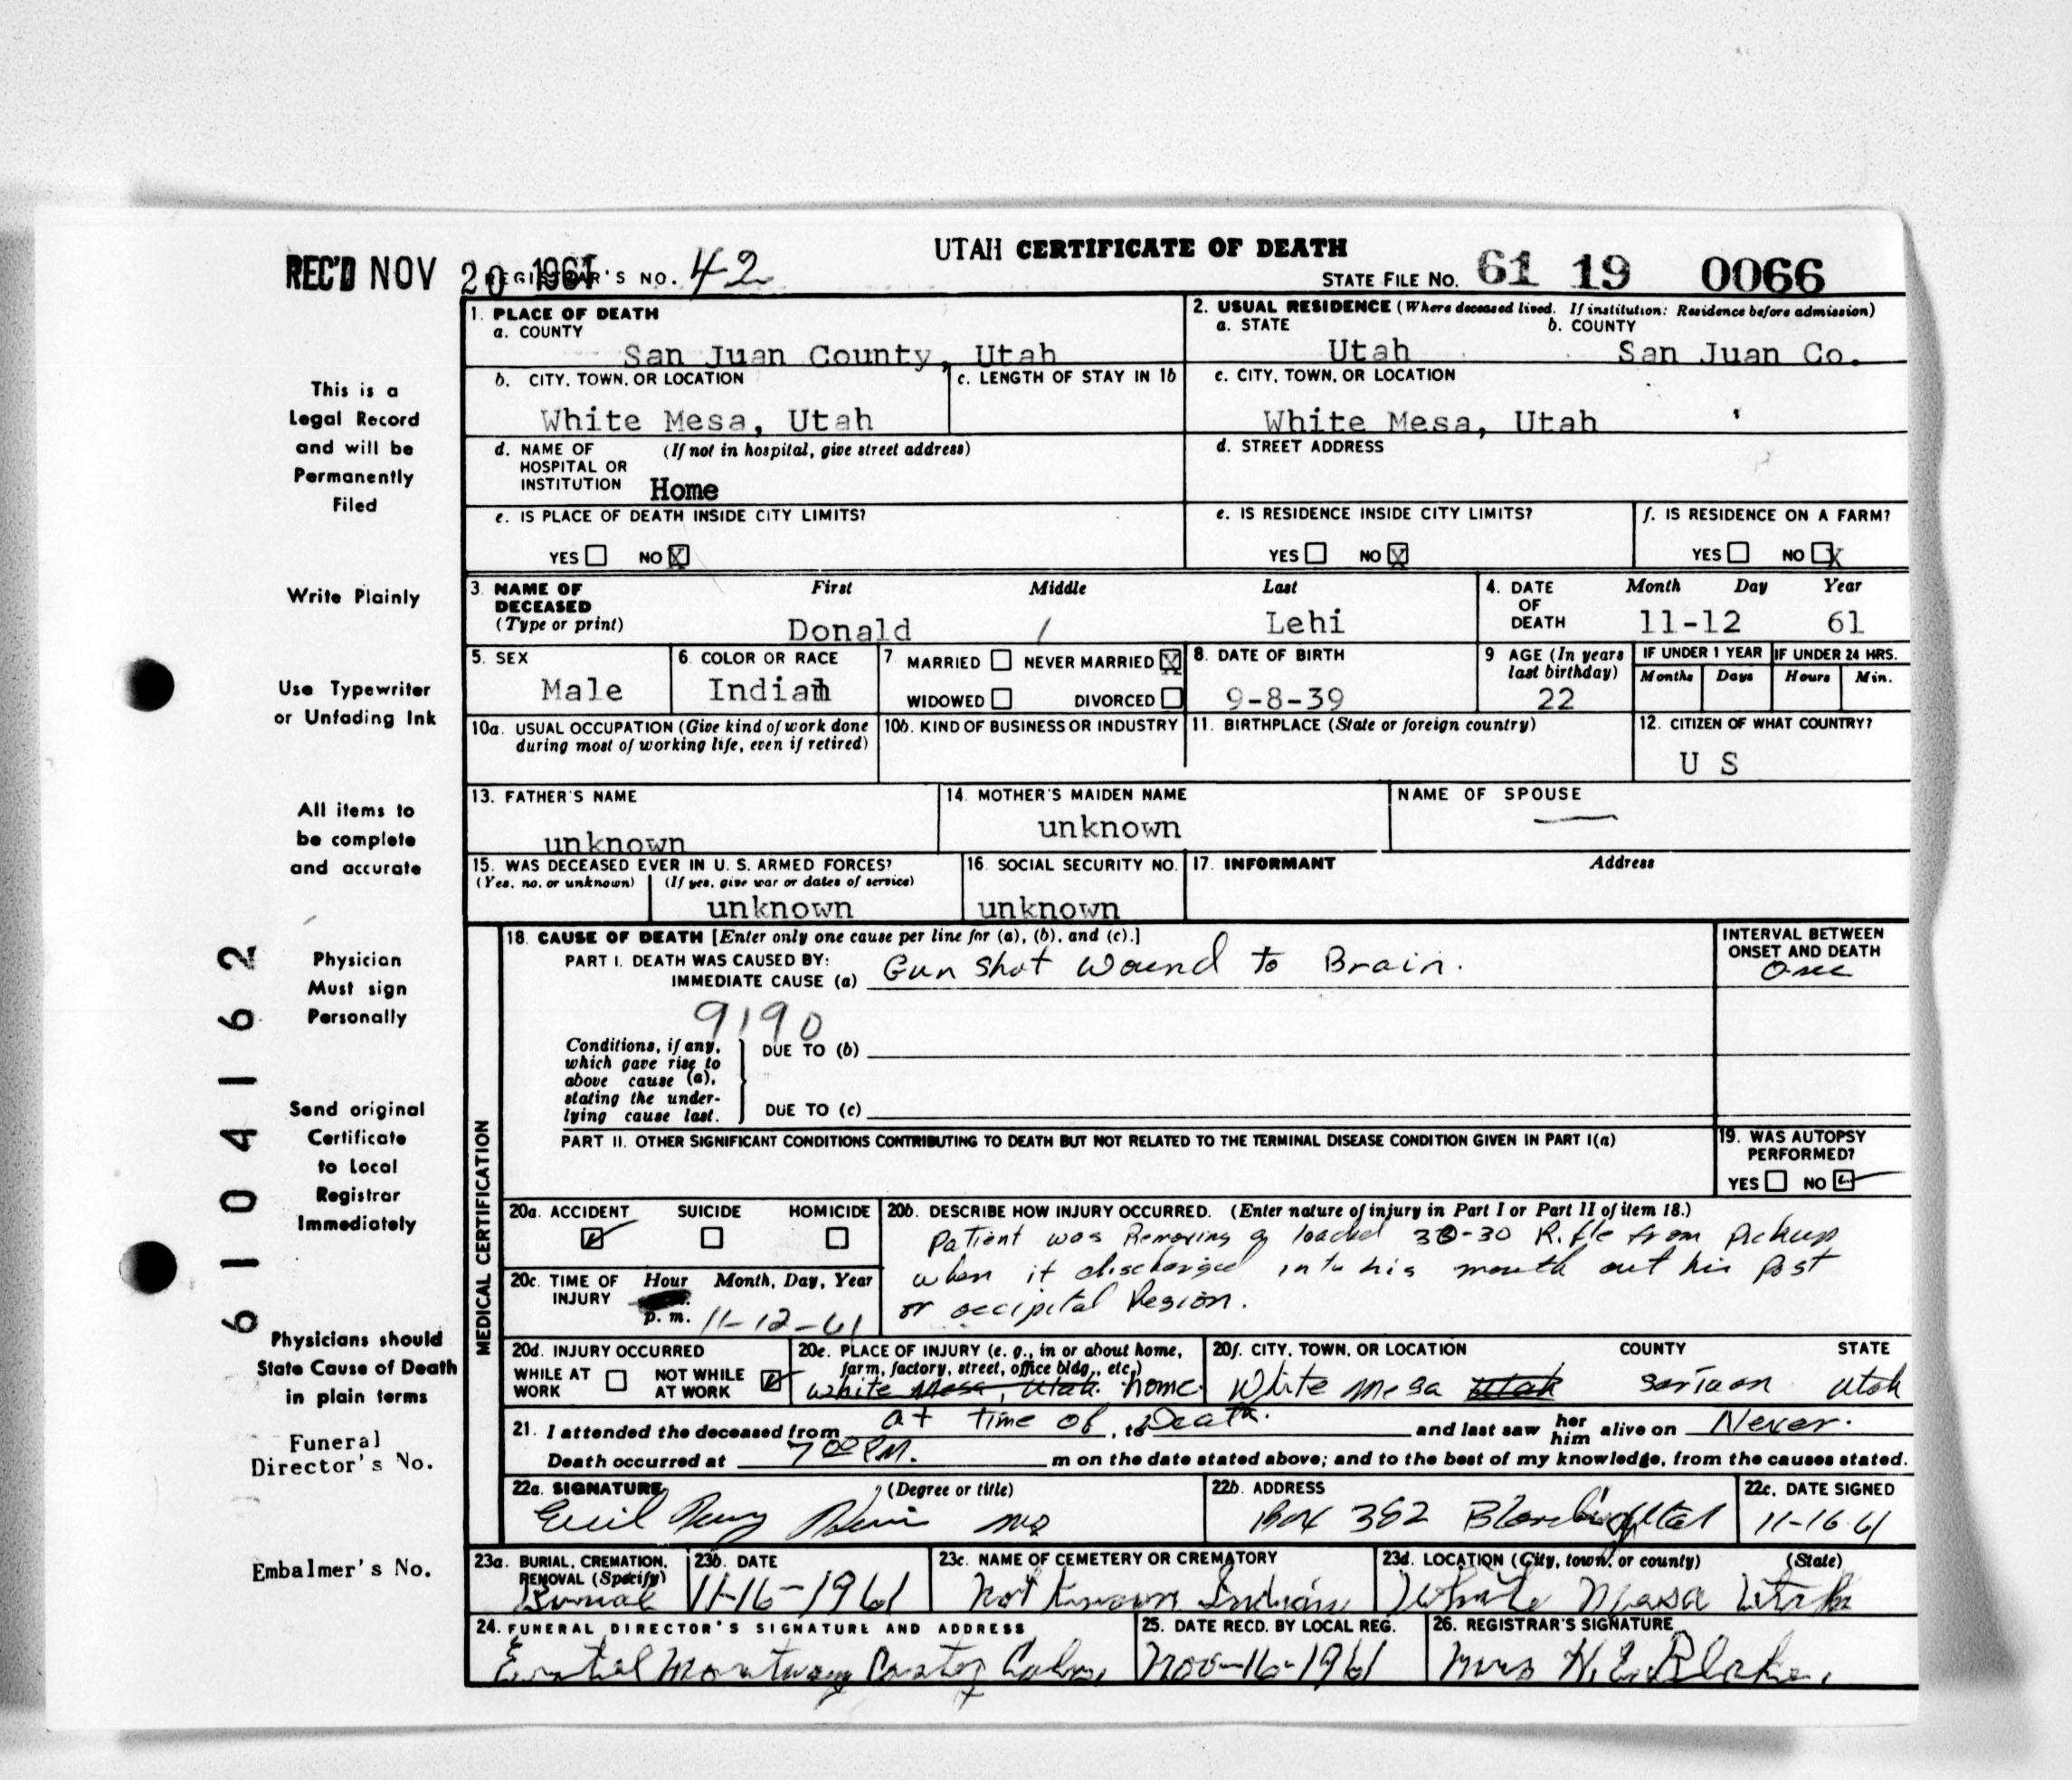 UTAH CERTIFICATE OF DEATH
REC'D NOV 20 1961 REGISTRAR'S NO. 42
STATE FILE NO. 61 19 0066
1. PLACE OF DEATH
a. COUNTY
San Juan County, Utah
2. USUAL RESIDENCE (Where deceased lived. If institution: Residence before admission)
a. STATE b. COUNTY
Utah San Juan Co.
b. CITY, TOWN, OR LOCATION
White Mesa, Utah
c. LENGTH OF STAY IN 1b
c. CITY, TOWN, OR LOCATION
White Mesa, Utah
d. NAME OF HOSPITAL OR INSTITUTION (If not in hospital, give street address)
Home
d. STREET ADDRESS
e. IS PLACE OF DEATH INSIDE CITY LIMITS?
YES NO X
e. IS RESIDENCE INSIDE CITY LIMITS?
YES NO X
f. IS RESIDENCE ON A FARM?
YES NO X
3. NAME OF DECEASED (Type or print)
First Middle Last
Donald / Lehi
4. DATE OF DEATH Month Day Year
11-12 61
5. SEX
Male
6. COLOR OR RACE
Indian
7. MARRIED NEVER MARRIED X
WIDOWED DIVORCED
8. DATE OF BIRTH
9-8-39
9 AGE (In years last birthday)
22
IF UNDER 1 YEAR IF UNDER 24 HRS.
Months Days Hours Min.
10a. USUAL OCCUPATION (Give kind of work done during most of working life, even if retired)
10b. KIND OF BUSINESS OR INDUSTRY
11. BIRTHPLACE (State or foreign country)
12. CITIZEN OF WHAT COUNTRY?
U S
13. FATHER'S NAME
unknown
14. MOTHER'S MAIDEN NAME
unknown
NAME OF SPOUSE
15. WAS DECEASED EVER IN U. S. ARMED FORCES?
(Yes, no, or unknown) (If yes, give war or dates of service)
unknown
16. SOCIAL SECURITY NO.
unknown
17. INFORMANT Address
MEDICAL CERTIFICATION
18. CAUSE OF DEATH [Enter only one cause per line for (a), (b), and (c).]
PART I. DEATH WAS CAUSED BY:
IMMEDIATE CAUSE (a) Gun shot wound to Brain.
INTERVAL BETWEEN ONSET AND DEATH
9190
Conditions, if any, which gave rise to above cause (a), stating the underlying cause last.
DUE TO (b)
DUE TO (c)
PART II. OTHER SIGNIFICANT CONDITIONS CONTRIBUTING TO DEATH BUT NOT RELATED TO THE TERMINAL DISEASE CONDITION GIVEN IN PART I(a)
19. WAS AUTOPSY PERFORMED?
YES NO
20a. ACCIDENT SUICIDE HOMICIDE
20b. DESCRIBE HOW INJURY OCCURRED. (Enter nature of injury in Part I or Part II of item 18.)
Patient was Removing a loaded 30-30 Rifle from Pickup
when it discharged into his mouth out his Post
or occipital Region.
20c. TIME OF INJURY Hour Month, Day, Year
p. m. 11-12-61
20d. INJURY OCCURRED
WHILE AT WORK NOT WHILE AT WORK
20e. PLACE OF INJURY (e. g., in or about home, farm, factory, street, office bldg., etc.)
White Mesa, Utah. home.
20f. CITY, TOWN, OR LOCATION COUNTY STATE
White Mesa Utah Utah
21. I attended the deceased from at time of, to Death. and last saw her him alive on Never.
Death occurred at 7 00 P.M. m on the date stated above; and to the best of my knowledge, from the causes stated.
22a. SIGNATURE (Degree or title)
MD
22b. ADDRESS
Box 362
22c. DATE SIGNED
11-16-61
23a. BURIAL, CREMATION, REMOVAL (Specify)
Burial
23b. DATE
11-16-1961
23c. NAME OF CEMETERY OR CREMATORY
Not Known Indian
23d. LOCATION (City, town, or county) (State)
White Mesa Utah
24. FUNERAL DIRECTOR'S SIGNATURE AND ADDRESS
Mortuary Cortez Colo.
25. DATE RECD. BY LOCAL REG.
Nov-16-1961
26. REGISTRAR'S SIGNATURE
Mrs H. E. Blake.
This is a
Legal Record
and will be
Permanently
Filed
Write Plainly
Use Typewriter
or Unfading Ink
All items to
be complete
and accurate
Physician
Must sign
Personally
Send original
Certificate
to Local
Registrar
Immediately
Physicians should
State Cause of Death
in plain terms
Funeral
Director's No.
Embalmer's No.
6104162